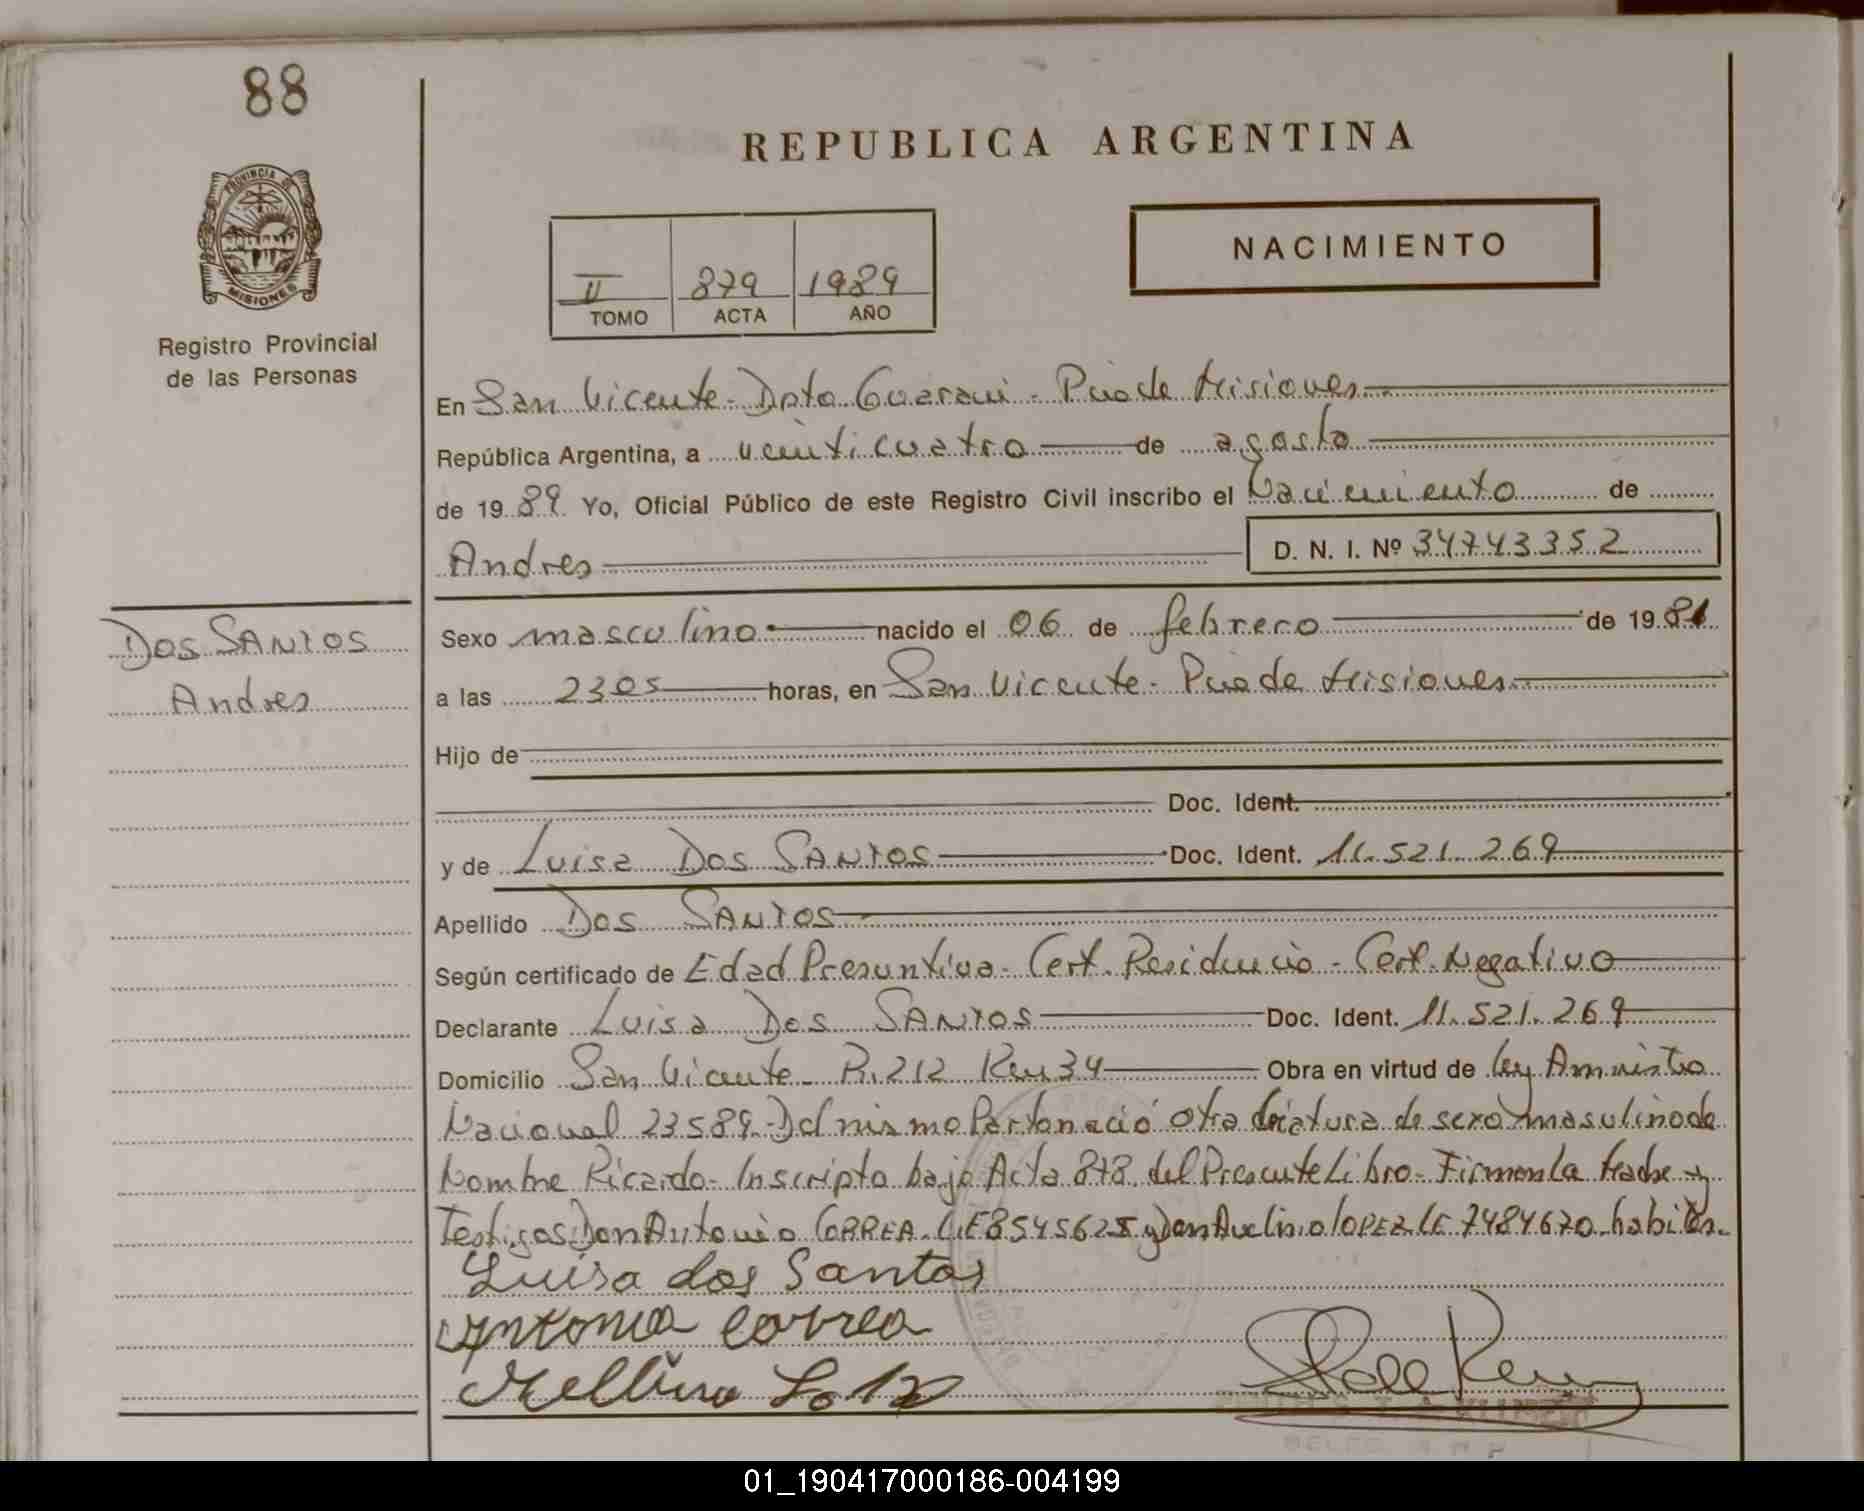 88
REPUBLICA ARGENTINA
PROVINCIA DE
MISIONES
Registro Provincial
de las Personas
II 879 1989
TOMO ACTA AÑO
NACIMIENTO
En San Vicente - Dpto Guarani - Pcia de Misiones
República Argentina, a veinticuatro de agosto
de 1989 Yo, Oficial Público de este Registro Civil inscribo el Nacimiento de
Andres D. N. I. Nº 34743352
DOS SANTOS
Andres
Sexo masculino nacido el 06 de febrero de 1981
a las 2305 horas, en San Vicente - Pcia de Misiones
Hijo de
Doc. Ident.
y de Luisa DOS SANTOS Doc. Ident. 11.521.269
Apellido DOS SANTOS
Según certificado de Edad Presuntiva - Cert. Residencia - Cert. Negativo
Declarante Luisa DOS SANTOS Doc. Ident. 11.521.269
Domicilio San Vicente - R. 212 Km 34 Obra en virtud de ley Amnistia
Nacional 23589 - Del mismo Parto nació otra criatura de sexo masculino de
Nombre Ricardo - Inscripto bajo Acta 878 del Presente Libro - Firman la Madre y
Testigos Don Antonio CORREA. LE 8545625 y Don Avelino LOPEZ LE 7484670 habiles.
Luisa dos Santos
Antonio Correa
01_190417000186-004199